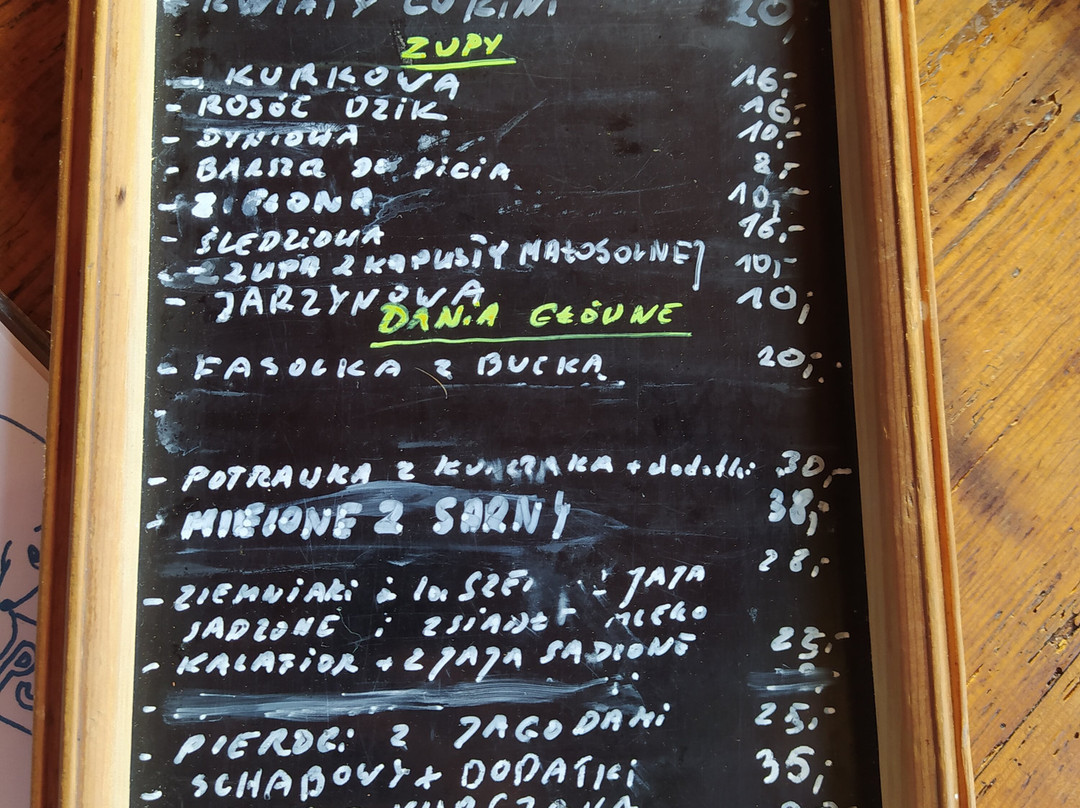 - KWIATY CUKINI 20,
ZUPY
- KURKOWA 16,-
- ROSÓŁ DZIK 16,-
- DYNIOWA 10,-
- BARSZCZ DO PICIA 8,-
- ZIELONA 10,-
- ŚLEDZIOWA 16,-
- ZUPA Z KAPUSTY MAŁOSOLNEJ 10,-
- JARZYNOWA 10,-
DANIA GŁÓWNE
- FASOLKA Z BUŁKĄ 20,-
- POTRAWKA Z KURCZAKA + dodatki 30,-
- MIELONE Z SARNY 38,-
28,-
- ZIEMNIAKI i JAJA
SADZONE i ZSIADŁE MLEKO
- KALAFIOR + 2 JAJA SADZONE 25,-
- PIEROGI Z JAGODAMI 25,-
- SCHABOWY + DODATKI 35,-
- KURCZAKA